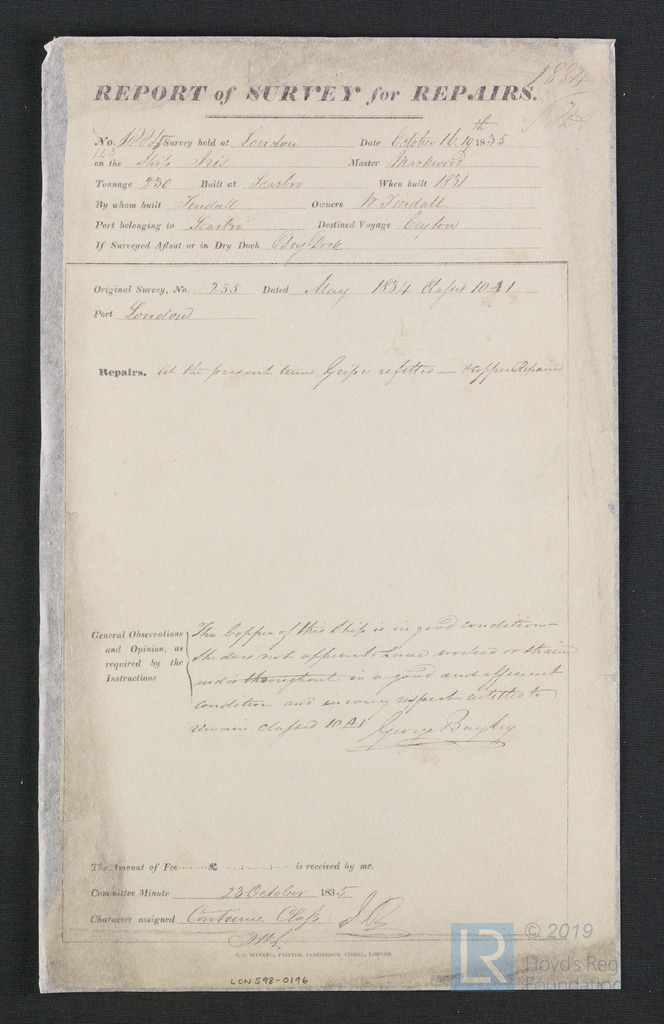 1884
REPORT of SURVEY for REPAIRS.
No. Survey held at London Date October 16. 19th 1835
143
on the Ship Iris Master
Tonnage 230 Built at Scarbro When built 1831
By whom built Tindall Owners W Tindall
Port belonging to Scarbro Destined Voyage Ceylon
If Surveyed Afloat or in Dry Dock Dry Dock
Original Survey, No. 255 Dated May 1834 Classed 10 A 1
Port London
Repairs. At the present time Gripe refitted — & copper Repaired
General Observations and Opinion, as required by the Instructions
The Copper of this Ship is in good condition
She does not appear to have worked or strained
and is throughout in a good and efficient
condition and in every respect entitled to
remain classed 10 A1
George Bayley
The Amount of Fee £ is received by me.
Committee Minute 23 October 1835
Character assigned Continue Class
PRINTER, FARRINGDON STREET, LONDON
LON 598-0196
LR © 2019
Lloyd's Register
Foundation